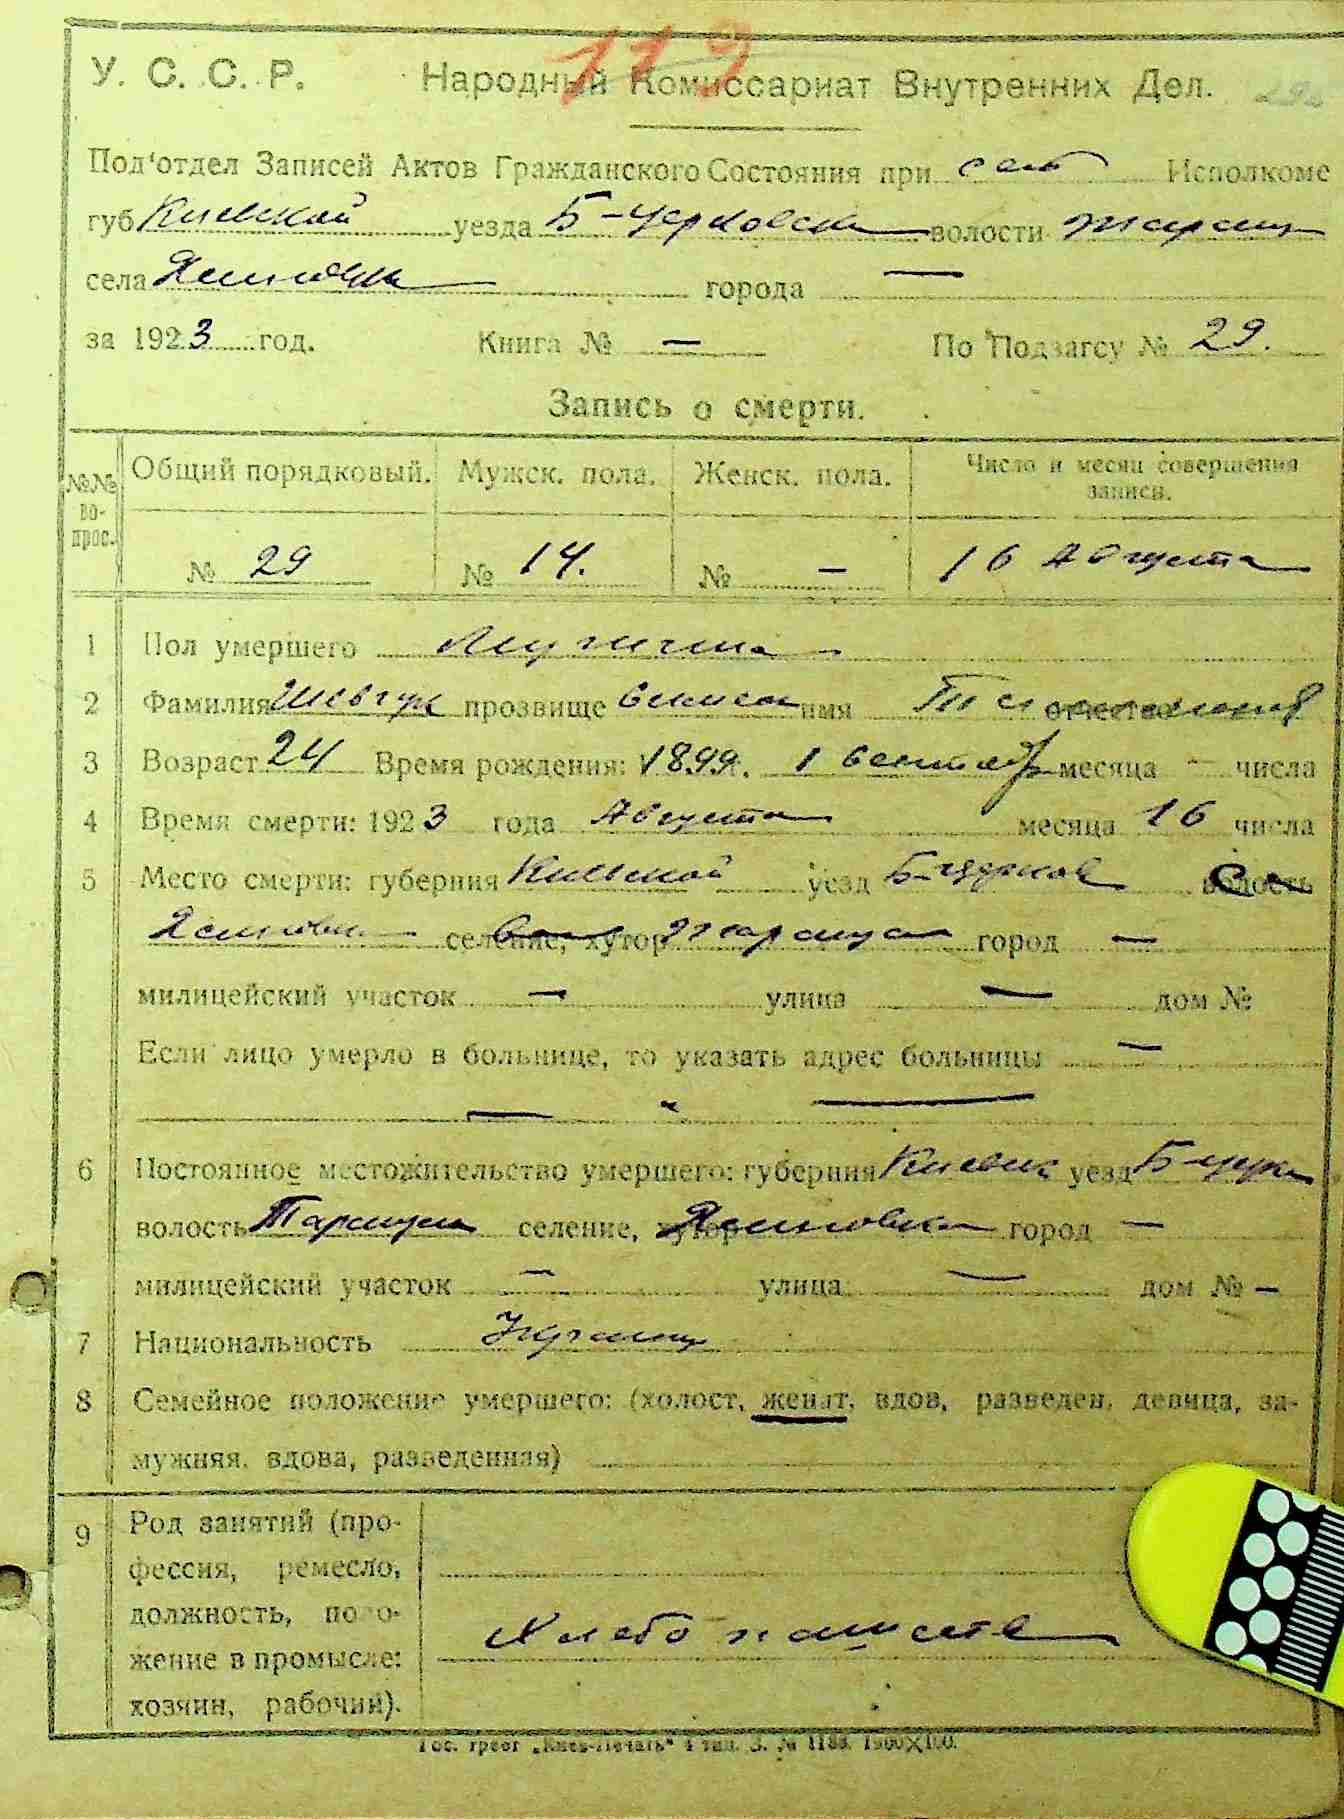 119
У. С. С. Р. Народный Комиссариат Внутренних Дел.
Под'отдел Записей Актов Гражданского Состояния при сель Исполкоме
губ Киевской уезда Б-Церковск волости
села города —
за 1923 год. Книга № — По Подзагсу № 29.
Запись о смерти.
№№ вопрос. Общий порядковый. Мужск. пола. Женск. пола. Число и месяц совершения записи.
№ 29 № 14. № — 16 Августа
1 Пол умершего Мужчина
2 Фамилия Шевчук прозвище имя
3 Возраст 24 Время рождения: 1899 г. 1 Сентябр месяца - числа
4 Время смерти: 1923 года Августа месяца 16 числа
5 Место смерти: губерния Киевской уезд Б-Церков волость
селение, хутор город —
милицейский участок — улица — дом №
Если лицо умерло в больнице, то указать адрес больницы —
— " —
6 Постоянное местожительство умершего: губерния Киевск уезд Б-церк
волость селение, хутор город —
милицейский участок — улица — дом № —
7 Национальность Украинц
8 Семейное положение умершего: (холост, женат, вдов, разведен, девица, за-
мужняя, вдова, разведенная)
9 Род занятий (про-
фессия, ремесло,
должность, поло-
жение в промысле:
хозяин, рабочий).
Хлебопашест
Гос. трест „Киев-Печать" 4 тип. З. № 1188. 1500×100.